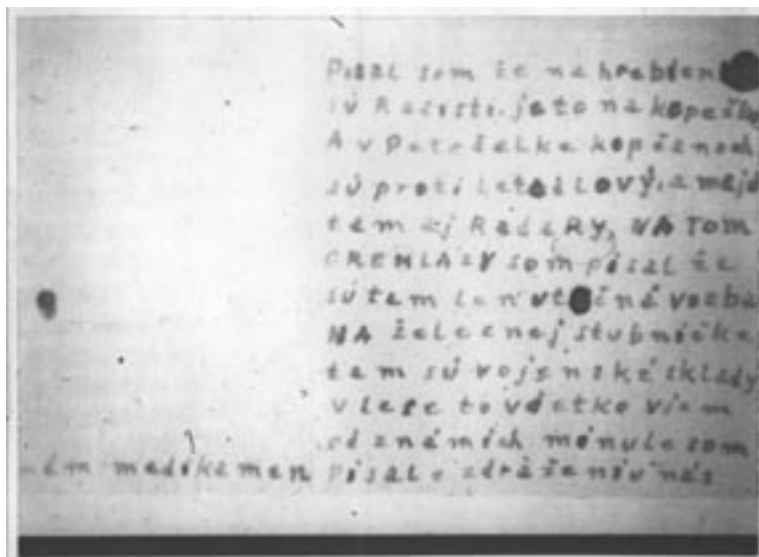 Pisal som že na hreben
sú Rasisti. je to na kopečku
A v Petržalke kopčanoch
sú proti letadlový. a majú
tam aj RadaRy, NA TOM
som písal že
sú tam len väzba
NA železnej studničke
tam sú vojenské sklady
v lese to všetko viem
od známich minule som
medikamen písal o zdražení u nás